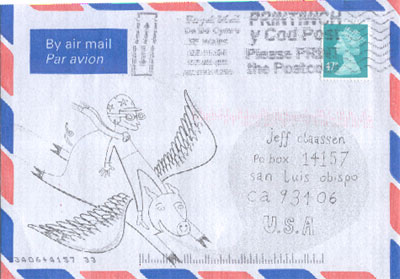 By air mail
Par avion
Royal Mail
PRINTINCH
y Cod Post
Please PRINT
the Postcod
47
Jeff claassen
PO box 14157
san Luis obispo
ca 93406
U.S.A